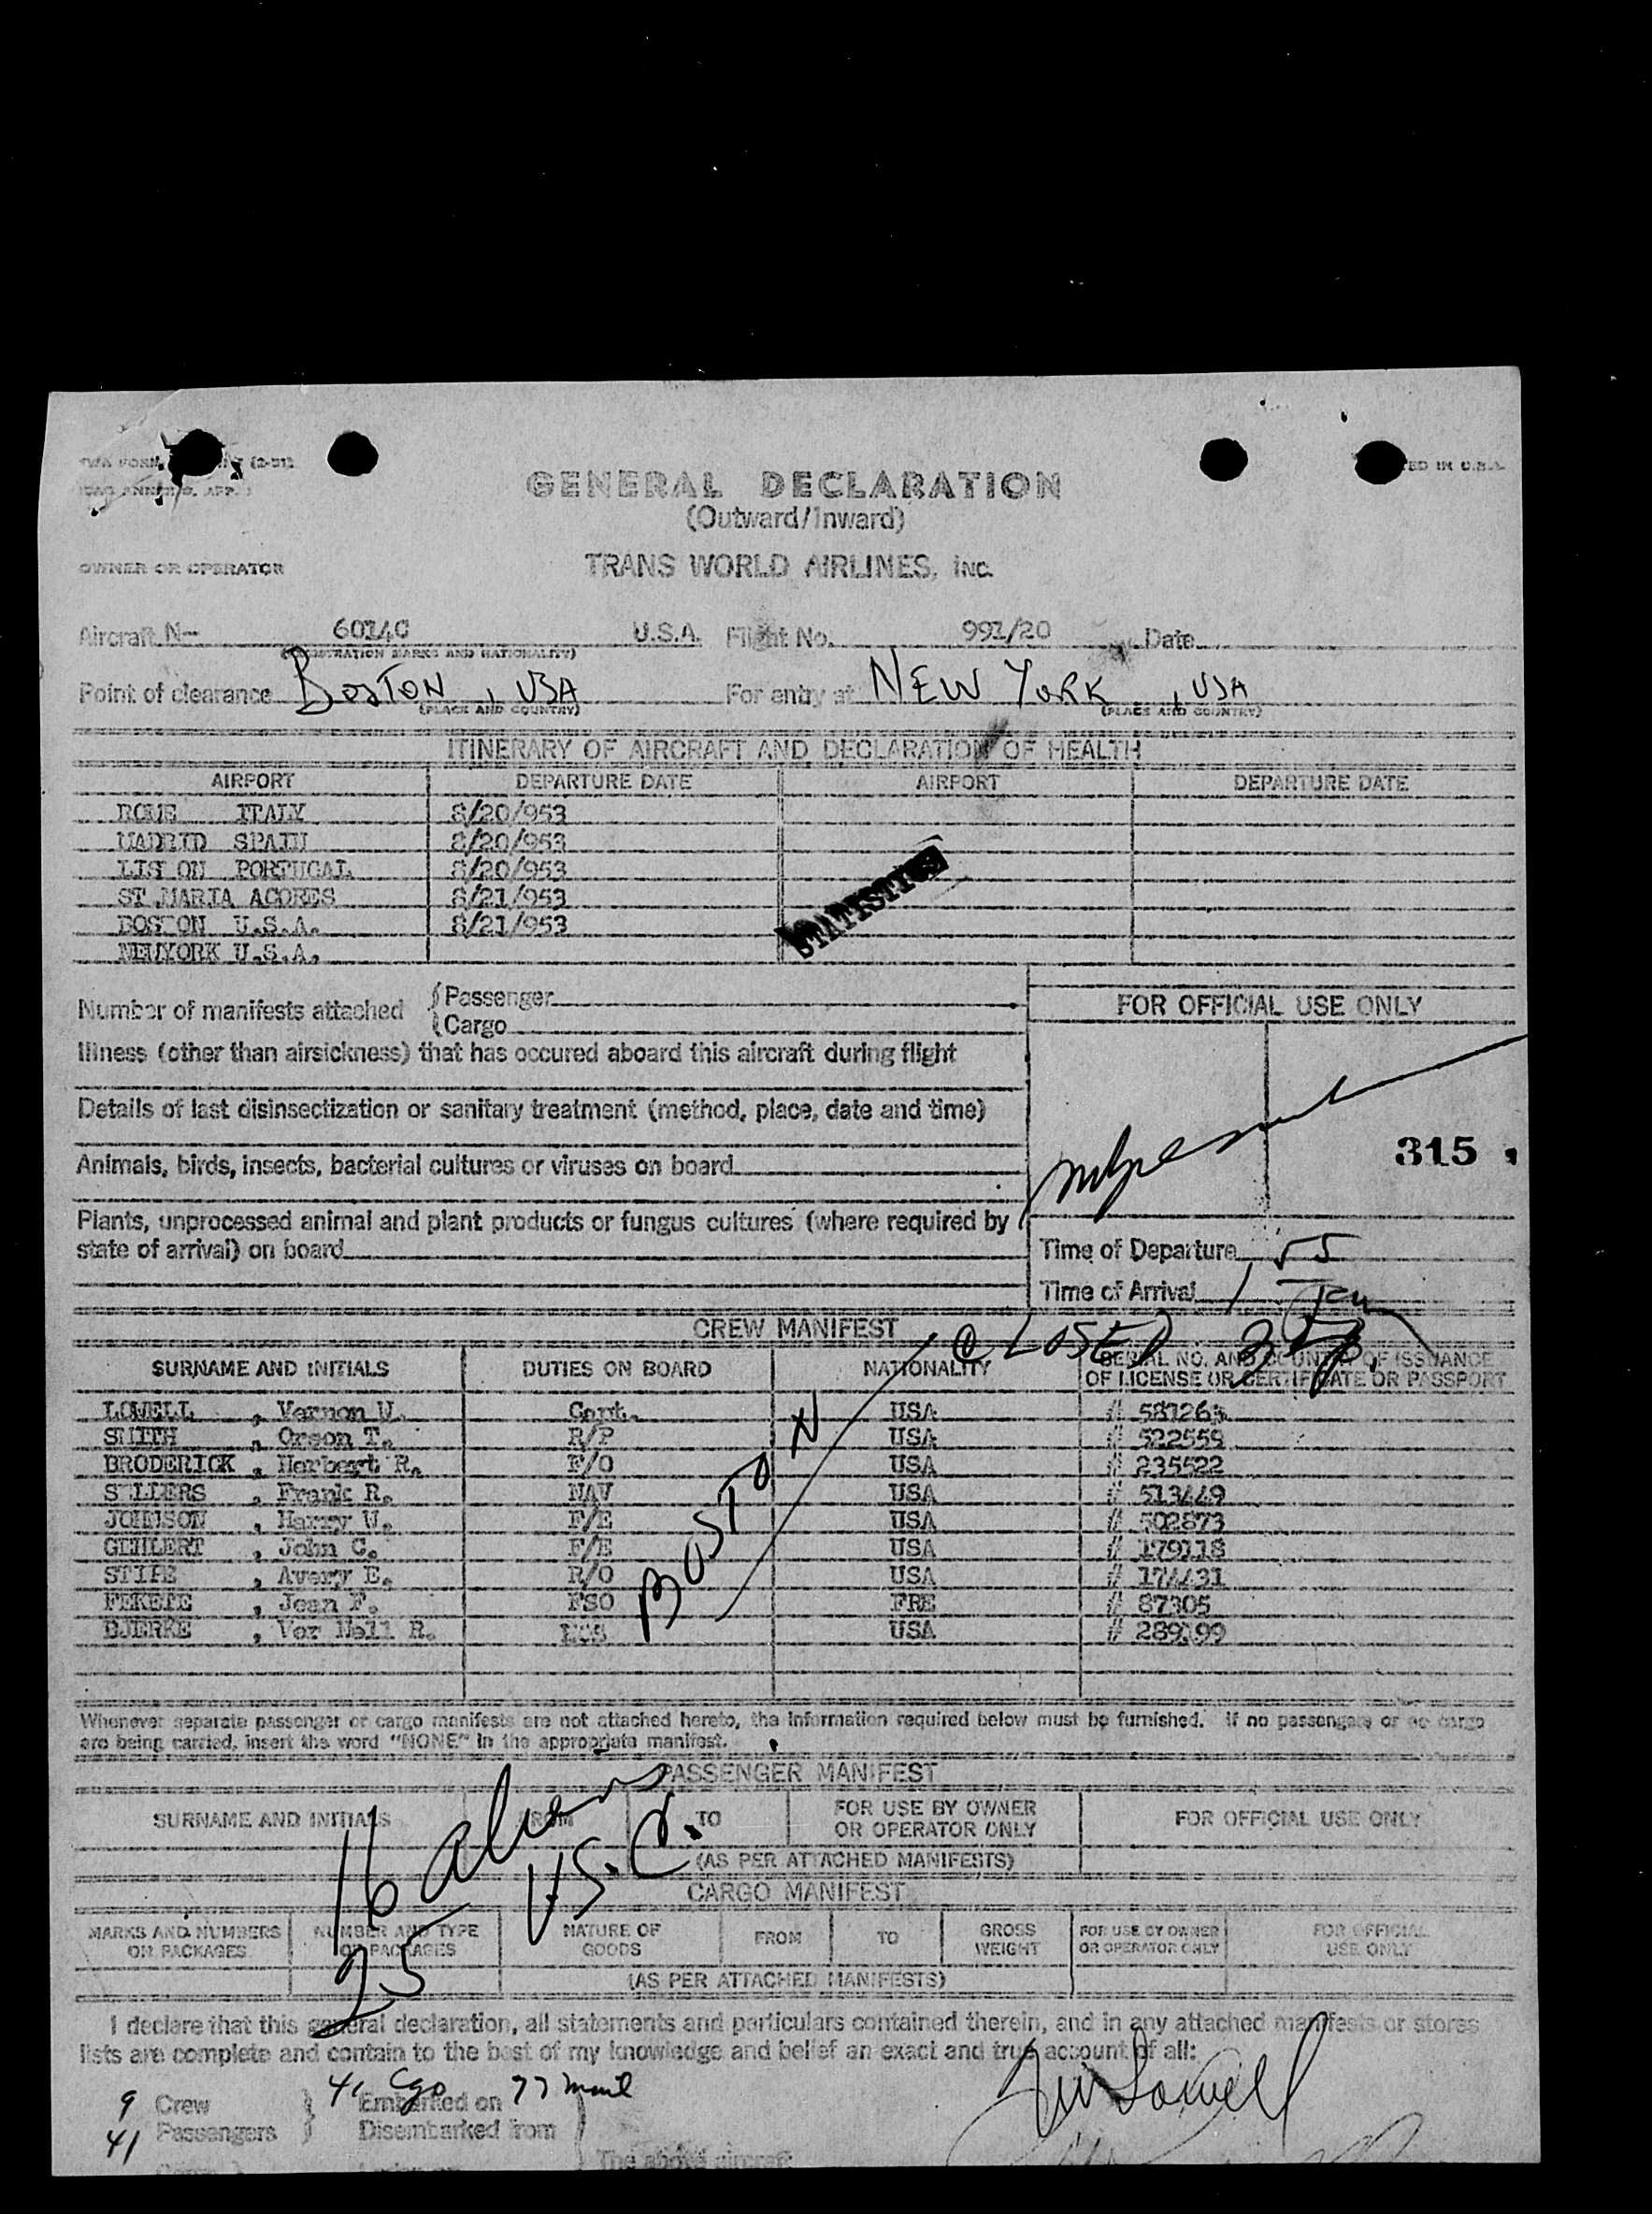 GENERAL DECLARATION
(Outward/Inward)
OWNER OR OPERATOR TRANS WORLD AIRLINES, INC.
Aircraft N- 6014C U.S.A. Flight No. 991/20 Date
(REGISTRATION MARKS AND NATIONALITY)
Point of clearance BOSTON, USA For entry at NEW YORK, USA
(PLACE AND COUNTRY) (PLACE AND COUNTRY)
ITINERARY OF AIRCRAFT AND DECLARATION OF HEALTH
AIRPORT DEPARTURE DATE AIRPORT DEPARTURE DATE
ROME ITALY 8/20/953
MADRID SPAIN 8/20/953
LIS ON PORTUGAL 8/20/953
ST.MARIA ACORES 8/21/953
BOSTON U.S.A. 8/21/953
NEWYORK U.S.A.
STATISTICS
Number of manifests attached { Passenger
Cargo
FOR OFFICIAL USE ONLY
Illness (other than airsickness) that has occured aboard this aircraft during flight
Details of last disinsectization or sanitary treatment (method, place, date and time)
315
Animals, birds, insects, bacterial cultures or viruses on board
Plants, unprocessed animal and plant products or fungus cultures (where required by
state of arrival) on board
Time of Departure
Time of Arrival
CREW MANIFEST
CLOSED
BOSTON
SURNAME AND INITIALS DUTIES ON BOARD NATIONALITY SERIAL NO. AND COUNTRY OF ISSUANCE
OF LICENSE OR CERTIFICATE OR PASSPORT
LOWELL, Vernon W. Capt. USA # 581265
SMITH, Orson T. R/P USA # 522559
BRODERICK, Herbert R. F/O USA # 235522
SELLERS, Frank R. NAV USA # 513449
JOHNSON, Harry W. F/E USA # 502873
GEHLERT, John C. F/E USA # 179118
STIPE, Avery E. R/O USA # 174431
FEKETE, Jean F. FSO FRE # 87305
BJERKE, Vor Nell R. USA
Whenever separate passenger or cargo manifests are not attached hereto, the information required below must be furnished. If no passengers or no cargo
are being carried, insert the word "NONE" in the appropriate manifest.
PASSENGER MANIFEST
SURNAME AND INITIALS FROM TO FOR USE BY OWNER
OR OPERATOR ONLY FOR OFFICIAL USE ONLY
16 aliens
(AS PER ATTACHED MANIFESTS)
25 U.S.C.
CARGO MANIFEST
MARKS AND NUMBERS
ON PACKAGES NUMBER AND TYPE
OF PACKAGES NATURE OF
GOODS FROM TO GROSS
WEIGHT FOR USE BY OWNER
OR OPERATOR ONLY FOR OFFICIAL
USE ONLY
(AS PER ATTACHED MANIFESTS)
I declare that this general declaration, all statements and particulars contained therein, and in any attached manifests or stores
lists are complete and contain to the best of my knowledge and belief an exact and true account of all:
9 Crew
41 Passengers
41 Cgo 77 mail
Embarked on
Disembarked from
VW Lowell
The above aircraft